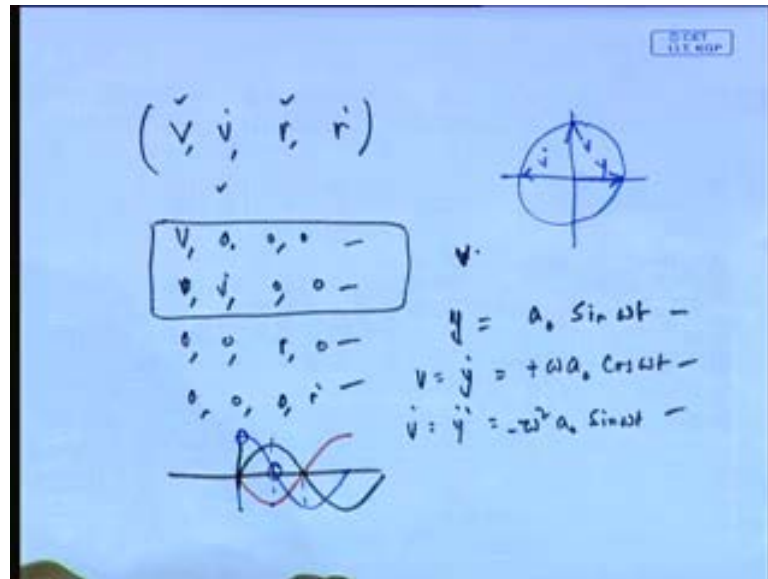 © CET
I.I.T. KGP
(v, v̇, r, ṙ)
v, 0, 0, 0 —
0, v̇, 0, 0 —
0, 0, r, 0 —
0, 0, 0, ṙ —
v̇ v y
v·
y = a₀ sin ωt —
v = ẏ = +ωa₀ cos ωt —
v̇ = ÿ = -ω² a₀ sin ωt —